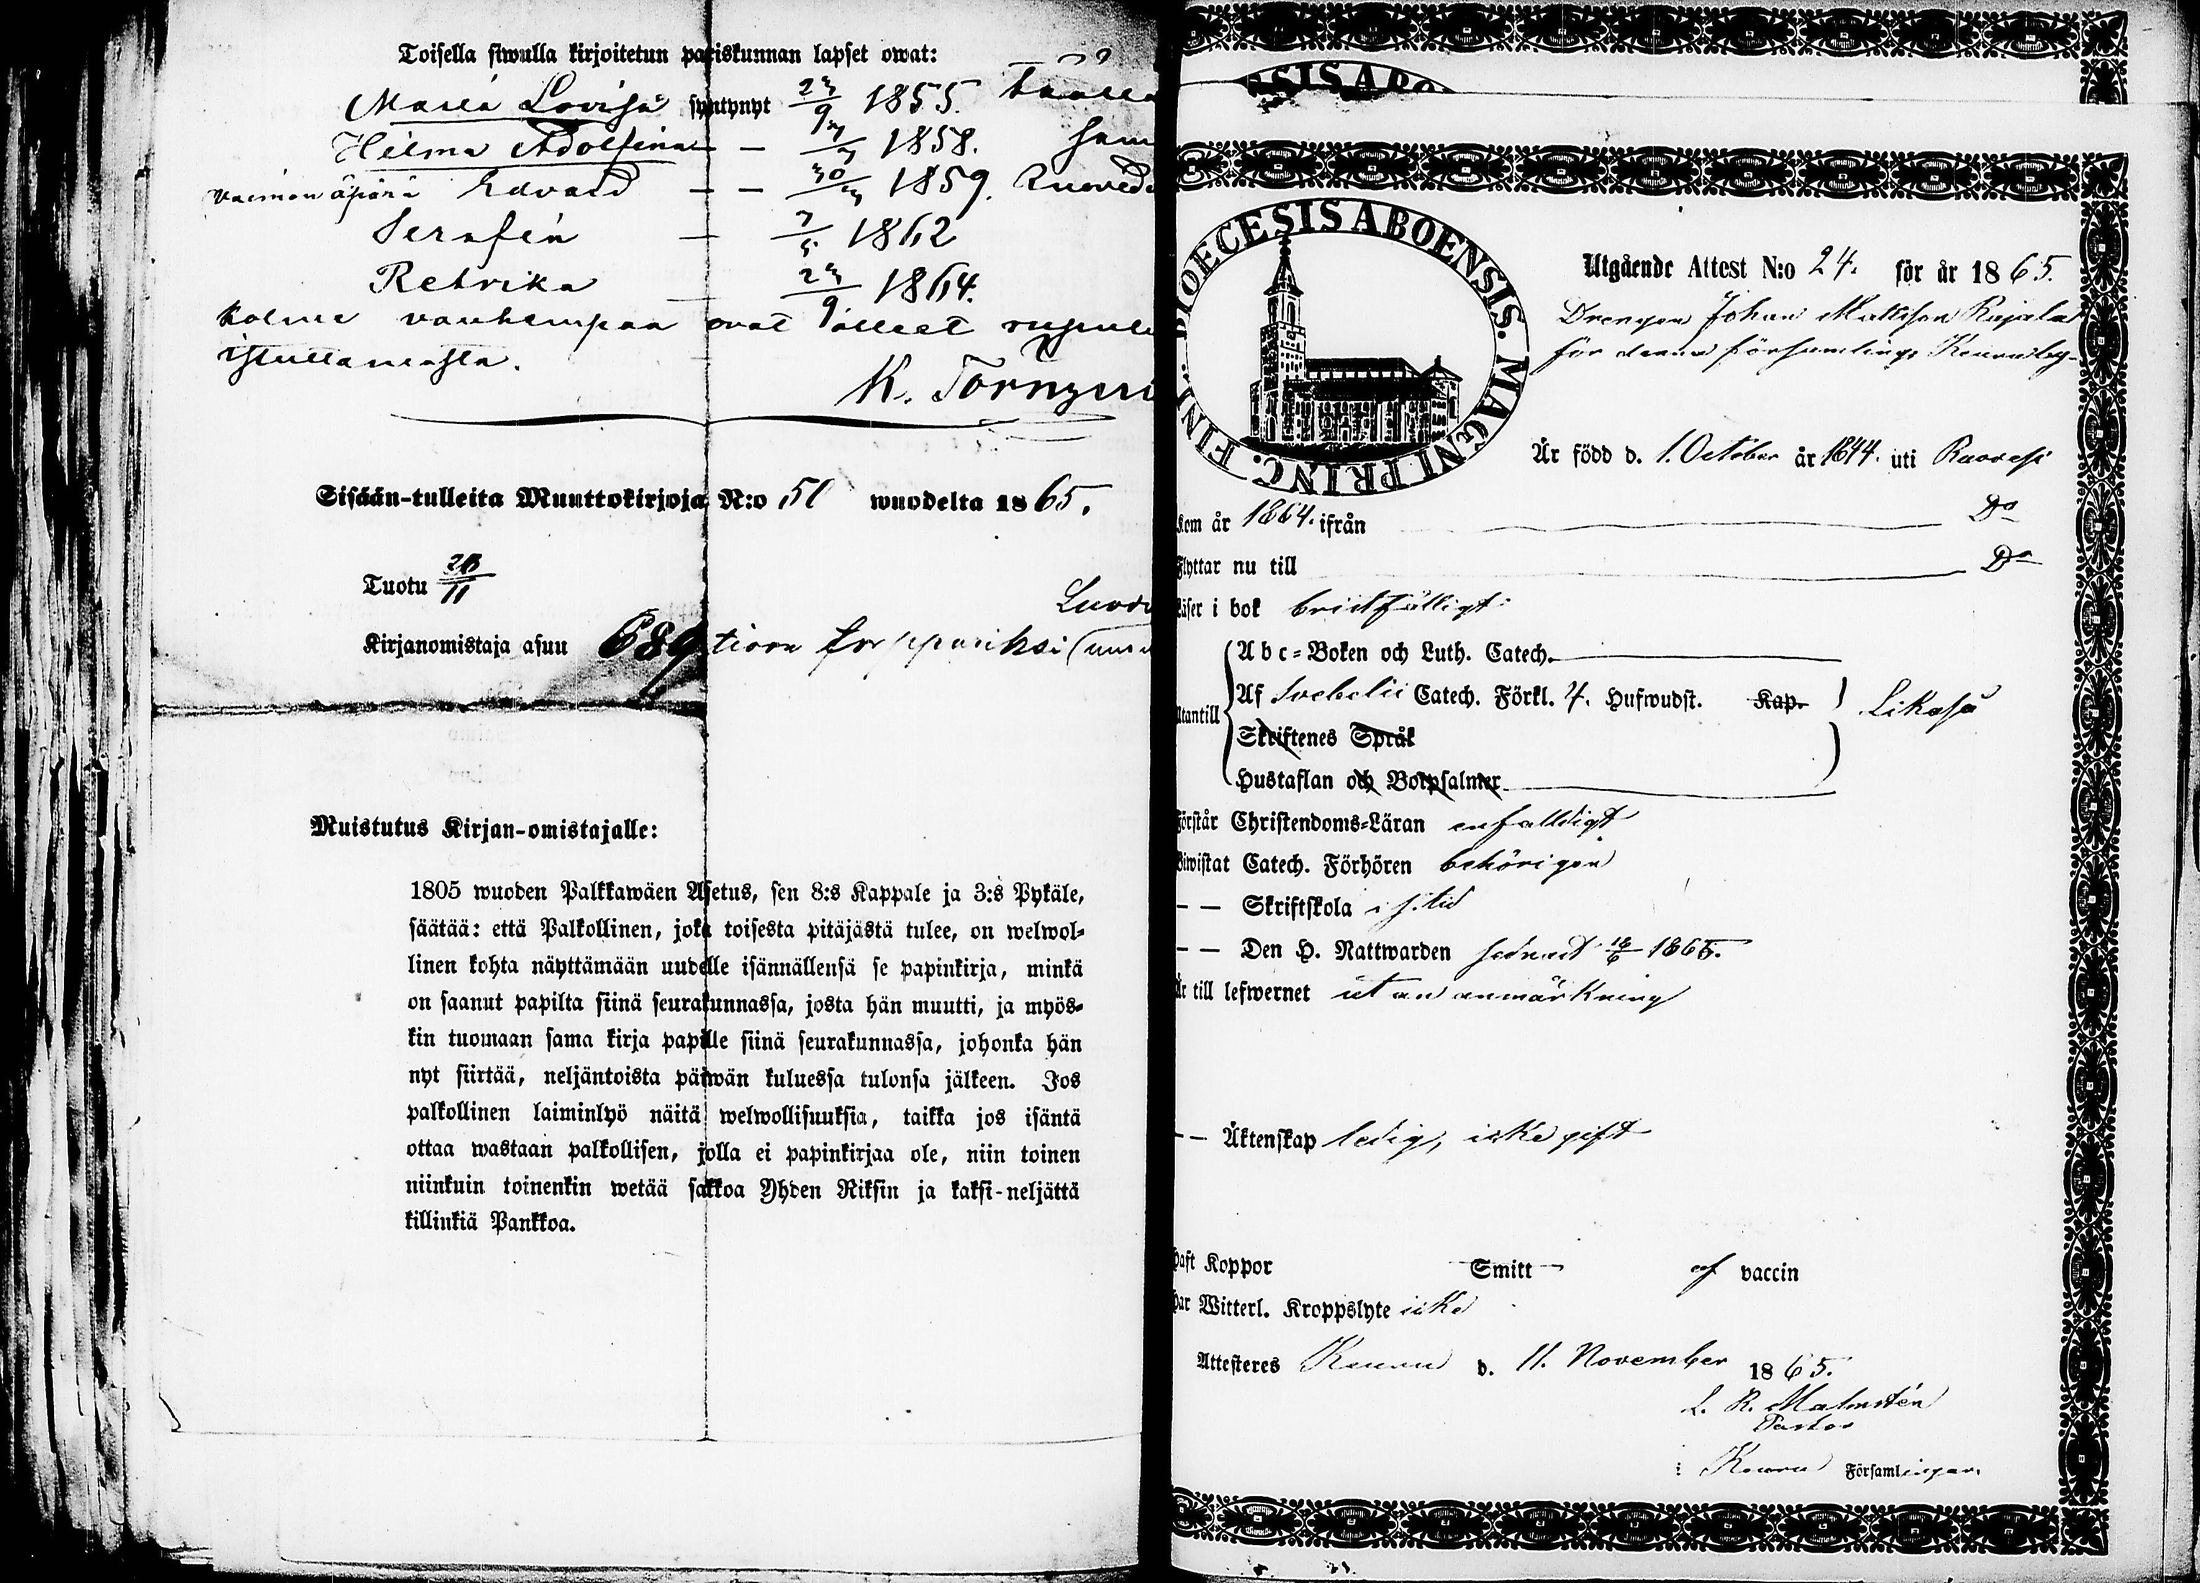 Toisella siwulla kirjoitetun pariskunnan lapset owat:
Maria Lovisa syntynyt 23/9 1855.
Hilma Adolfina — 1858.
vaimon äpärä Edvard — — 30/3 1859.
Serafia — 7/5 1862
Retrika — 23/9 1864.
Kolme vanhempaa ovat olleet
istuttamasta.
K.
Sisään-tulleita Muuttokirjoja N:o 51 wuodelta 1865.
Tuotu /11
Kirjanomistaja asuu 689
Muistutus Kirjan-omistajalle:
1805 wuoden Palkkawäen Asetus, sen 8:s Kappale ja 3:s Pykäle,
säätää: että Palkollinen, joka toisesta pitäjästä tulee, on welwol-
linen kohta näyttämään uudelle isännällensä se papinkirja, minkä
on saanut papilta siinä seurakunnassa, josta hän muutti, ja myös-
kin tuomaan sama kirja papille siinä seurakunnassa, johonka hän
nyt siirtää, neljäntoista päiwän kuluessa tulonsa jälkeen. Jos
palkollinen laiminlyö näitä welwollisuuksia, taikka jos isäntä
ottaa wastaan palkollisen, jolla ei papinkirjaa ole, niin toinen
niinkuin toinenkin wetää sakkoa Yhden Riksin ja kaksi-neljättä
killinkiä Pankkoa.
DIOECESIS ABOENSIS. MAGNI PRINC. FINL.
Utgående Attest N:o 24. för år 1865.
Drengen Johan Mattsson Rajala
för denna församlings Keuruby
Är född d. 1. October år 1844. uti Ruovesi
Kom år 1864. ifrån — Do
Flyttar nu till — Do
Läser i bok bristfälligt
Utantill
Abc-Boken och Luth. Catech.
Af Svebelii Catech. Förkl. 4. Hufwudst. Kap. Likaså
Skriftenes Språk
Hustaflan och Botpsalmer
Förstår Christendoms-Läran enfalldigt
Biwistat Catech. Förhören behörigen
— — Skriftskola i s. tid
— — Den H. Nattwarden sednast 1865.
Är till lefwernet utan anmärkning
— — Äktenskap ledig, icke gift
Haft Koppor Smitt — af vaccin
Har Witterl. Kroppslyte icke
Attesteres Keuru d. 11. November 1865.
L. R. Malmstén
Pastor
i Keuru Församlingar.